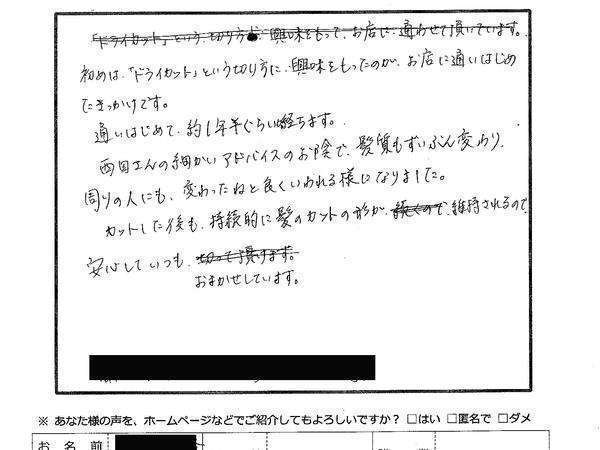 「ドライカット」という切り方 興味をもって、お店に通わせて頂いています。
初めは、「ドライカット」という切り方に、興味をもったのが、お店に通いはじめ
たきっかけです。
通いはじめて、約1年半ぐらい経ちます。
西田さんの細かいアドバイスのお陰で、髪質もずいぶん変わり、
周りの人にも、変わったねと良くいわれる様になりました。
カットした後も、持続的に髪のカットの形が、続くので、維持されるので、
安心していつも、切って頂けます。
おまかせしています。
※ あなた様の声を、ホームページなどでご紹介してもよろしいですか？ □はい □匿名で □ダメ
お 名 前